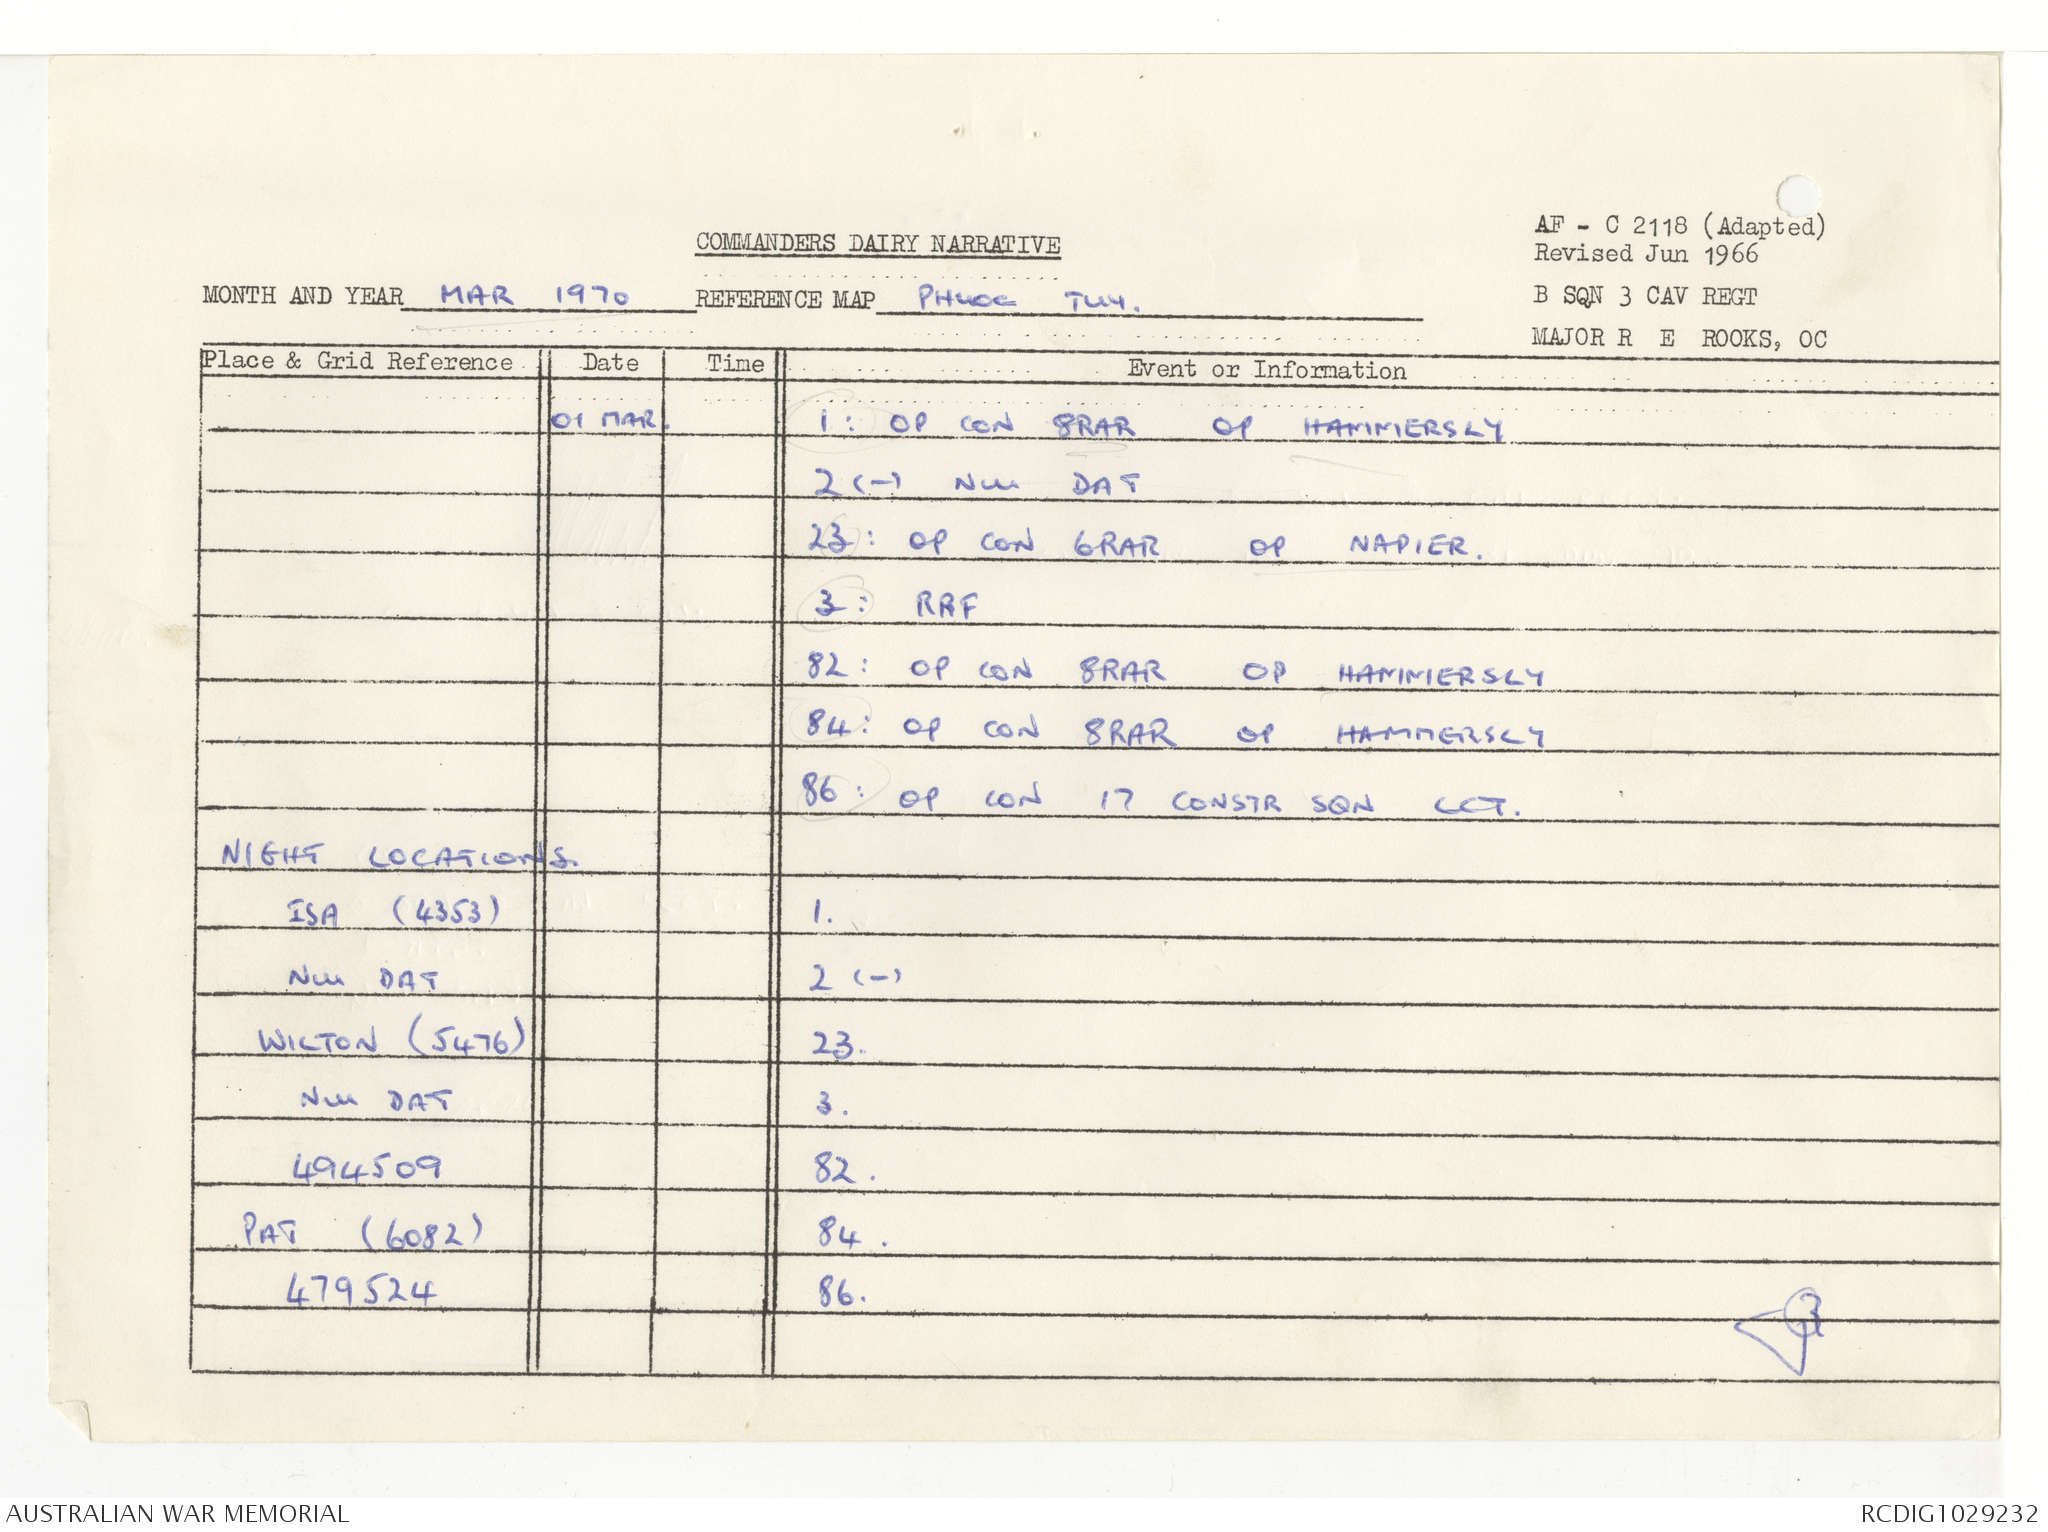 AF - C 2118 (Adapted)
COMMANDERS DAIRY NARRATIVE
Revised Jun 1966
MONTH AND YEAR MAR 1970 REFERENCE MAP PHUOC TUY.
B SQN 3 CAV REGT
MAJOR R E ROOKS, OC
Place & Grid Reference Date Time Event or Information
01 MAR. 1: OP CON 8RAR OP HAMMERSLY
2 (-) NUI DAT
23: OP CON 6RAR OP NAPIER.
3: RAF
82: OP CON 8RAR OP HAMMERSLY
84: OP CON 8RAR OP HAMMERSLY
86: OP CON 17 CONSTR SQN LCT.
NIGHT LOCATIONS.
ISA (4353) 1.
NUI DAT 2 (-)
WILTON (5476) 23.
NUI DAT 3.
494509 82.
PAT (6082) 84.
479524 86.
AUSTRALIAN WAR MEMORIAL
RCDIG1029232